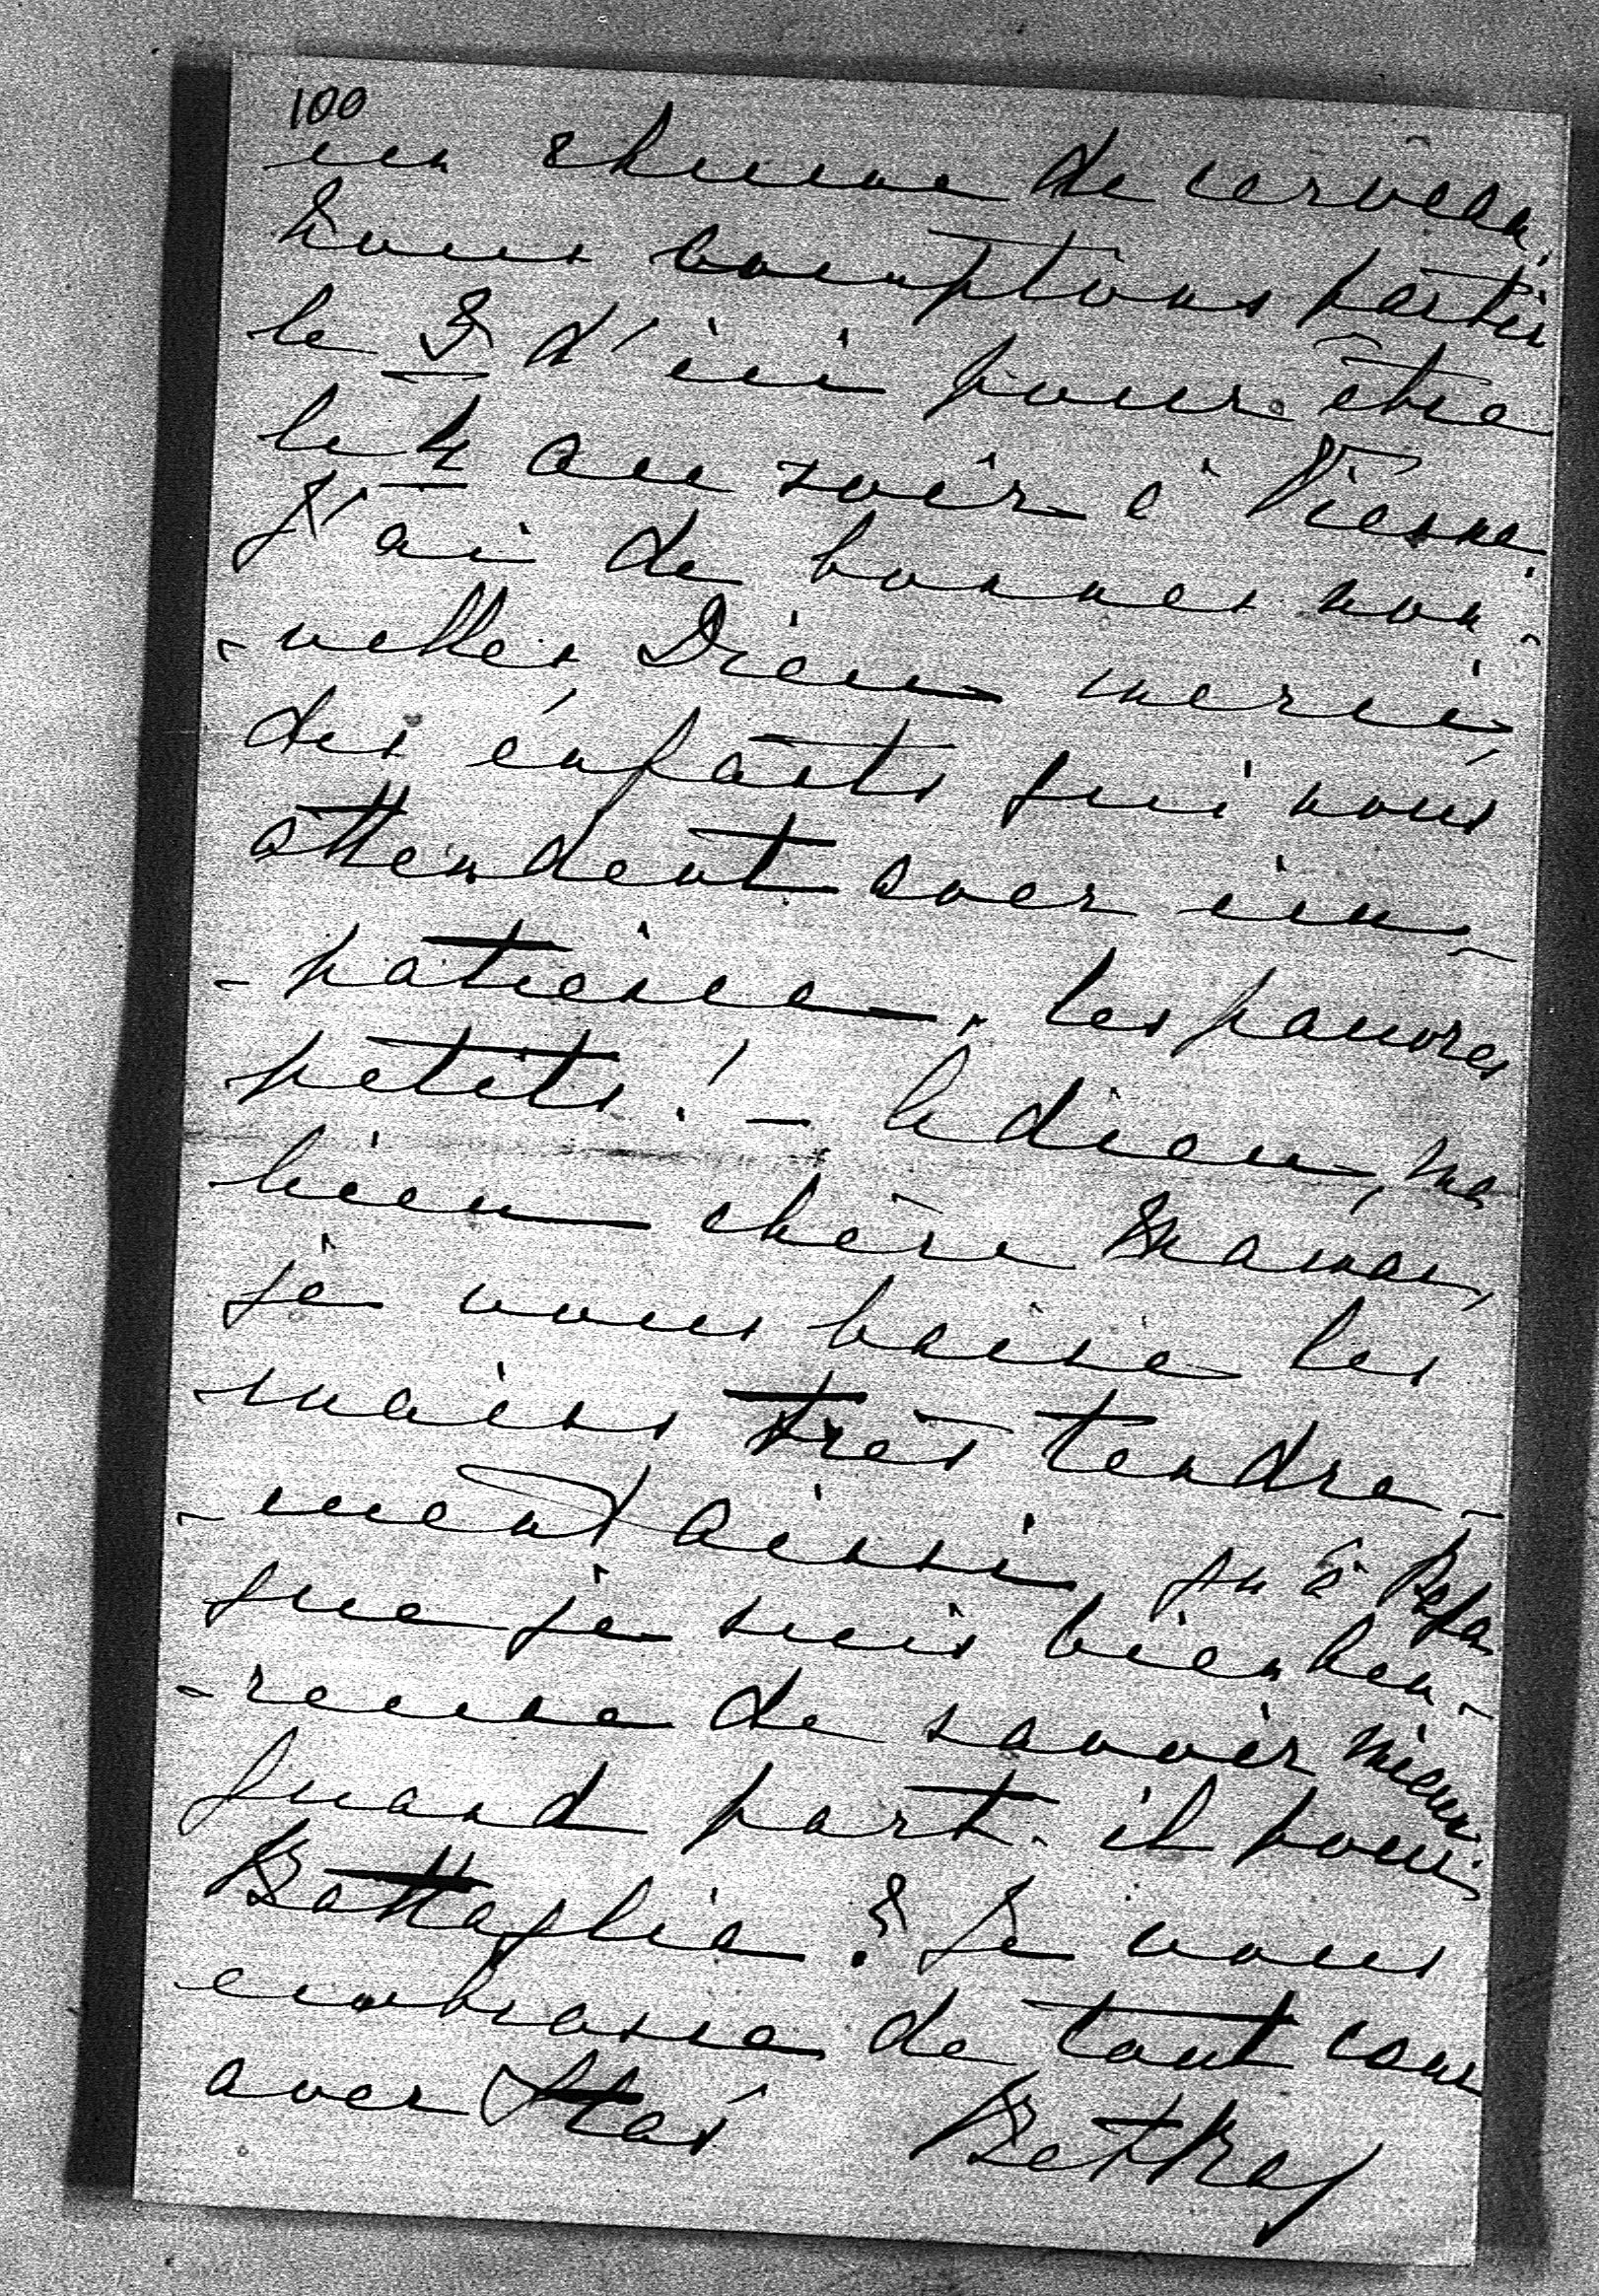 100
un rhume de cerveau.
Nous comptons partir
le 3 d'ici pour être
le 4 au soir à Vienne.
J'ai de bonnes nou-
-velles, Dieu merci,
des enfants qui nous
attendent avec im-
-patience, les pauvres
petits! - Adieu, ma
bien chère Maman,
je vous baise les
mains très tendre-
-ment ainsi qu'à Papa
que je suis bien heu-
-reuse de savoir mieux.
Quand part-il pour
Battaglia? Je vous
embrasse de tout cœur
avec